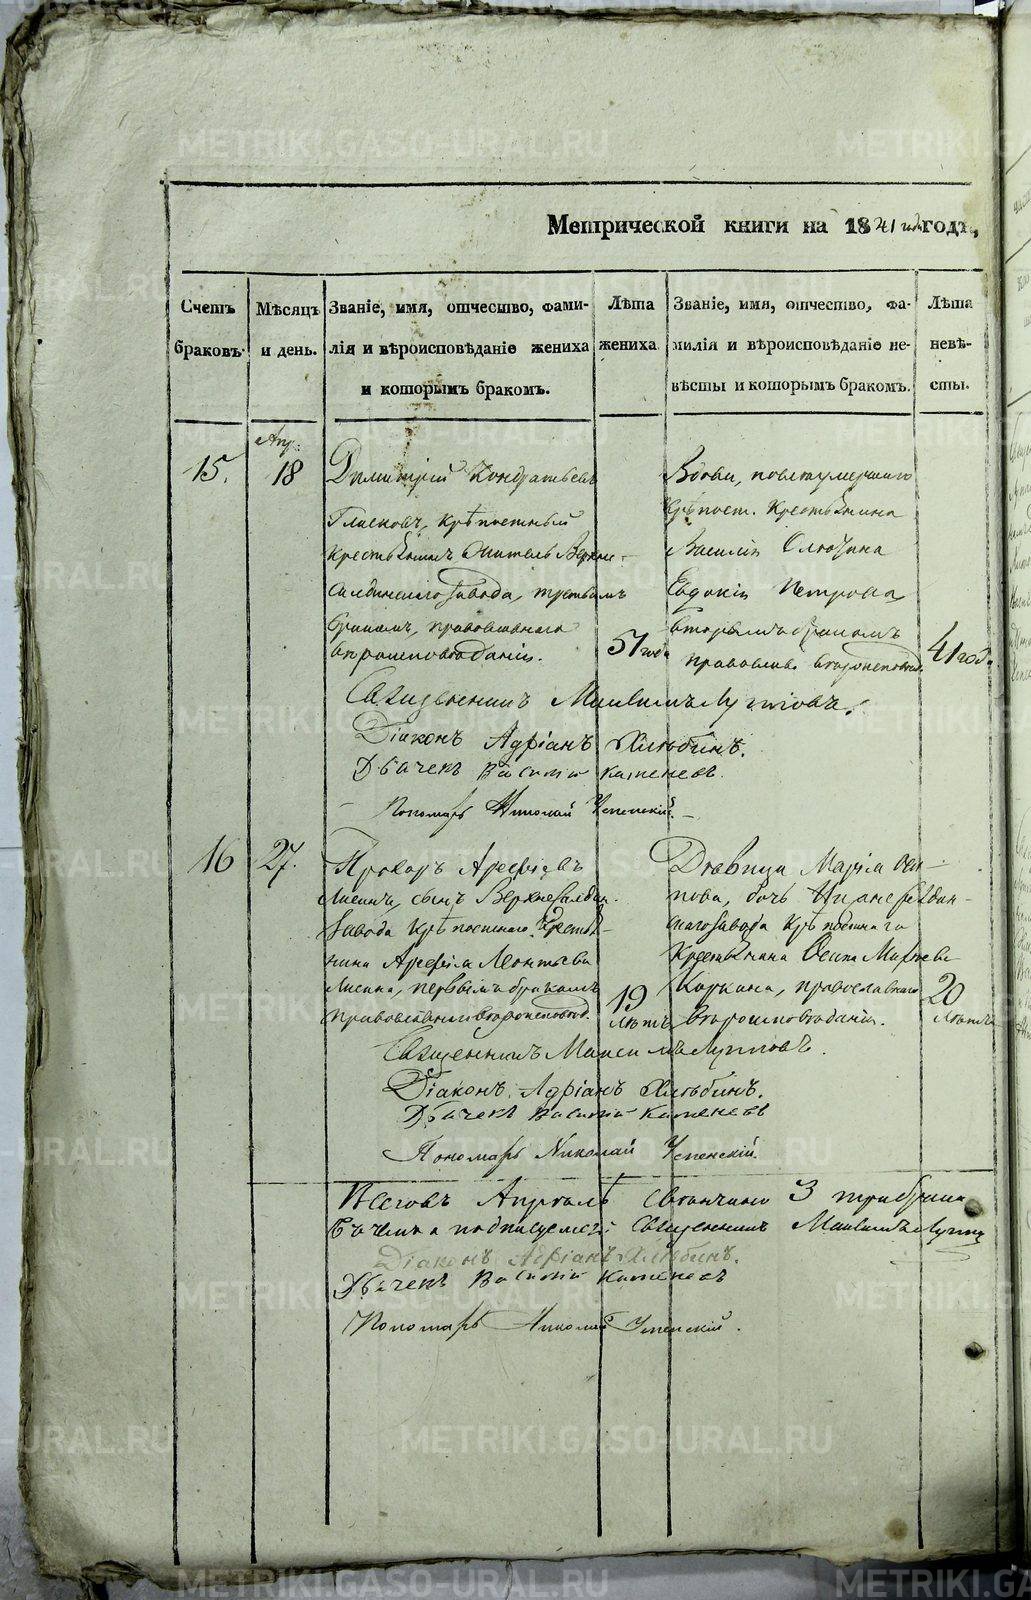 Метрической книги на 1841 года годъ,
Счетъ браковъ.
Мѣсяцъ и день.
Званіе, имя, отчество, фамилія и вѣроисповѣданіе жениха и которымъ бракомъ.
Лѣта жениха
Званіе, имя, отчество, фамилія и вѣроисповѣданіе невѣсты и которымъ бракомъ.
Лѣта невѣсты.
Апр.
15.
18
Димитрій Кондратьевъ
крѣпостный
крестьянинъ житель Верхне-
салдинскаго завода, третьимъ
бракомъ, православнаго
вѣроисповѣданія.
51 года
Вдова, послѣ умершаго
крѣпост. крестьянина
Василія
Евдокія Петрова
вторымъ бракомъ
православ. вѣроисповѣд.
41 года
Священникъ Максимъ Лупповъ.
Діаконъ Адріанъ Хлѣбинъ.
Дьячекъ Василій Каменевъ.
Пономарь Николай Успенскій.
16
27.
Прохоръ Арефіевъ
Лисинъ, сынъ Верхнесалдин.
завода крѣпостнаго крестья-
нина Арефія Леонтьева
Лисина, первымъ бракомъ
православнаго вѣроисповѣд.
19
лѣтъ
Дѣвица Марія Оси-
пова, дочь Нижнесалдин-
скаго завода крѣпостнаго
крестьянина Осипа
православнаго
вѣроисповѣданія.
20
лѣтъ
Священникъ Максимъ Лупповъ.
Діаконъ Адріанъ Хлѣбинъ.
Дьячекъ Василій Каменевъ
Пономарь Николай Успенскій.
Всего въ Апрѣлѣ свѣнчано 3 три брака
въ чемъ и подписуемся: Священникъ Максимъ Луппов
Діаконъ Адріанъ Хлѣбинъ.
Дьячекъ Василій Каменевъ
Пономарь Николай Успенскій.
METRIKI.GASO-URAL.RU